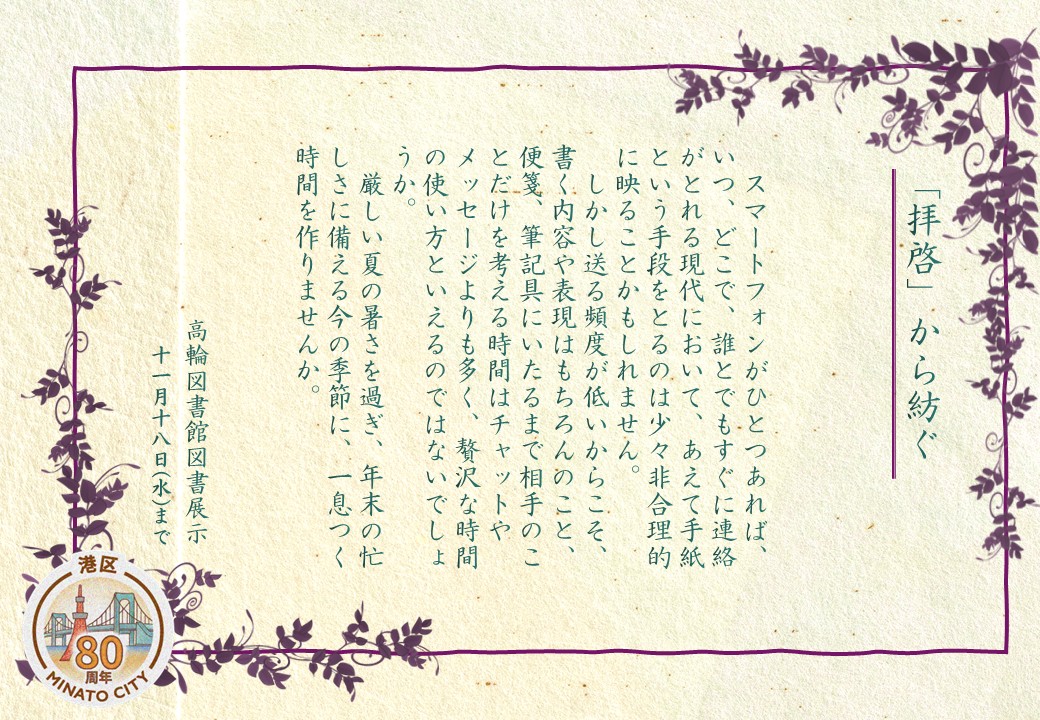 「拝啓」から紡ぐ
スマートフォンがひとつあれば、
いつ、どこで、誰とでもすぐに連絡
がとれる現代において、あえて手紙
という手段をとるのは少々非合理的
に映ることかもしれません。
しかし送る頻度が低いからこそ、
書く内容や表現はもちろんのこと、
便箋、筆記具にいたるまで相手のこ
とだけを考える時間はチャットや
メッセージよりも多く、贅沢な時間
の使い方といえるのではないでしょ
うか。
厳しい夏の暑さを過ぎ、年末の忙
しさに備える今の季節に、一息つく
時間を作りませんか。
高輪図書館図書展示
十一月十八日(水)まで
港区
80
周年
MINATO CITY